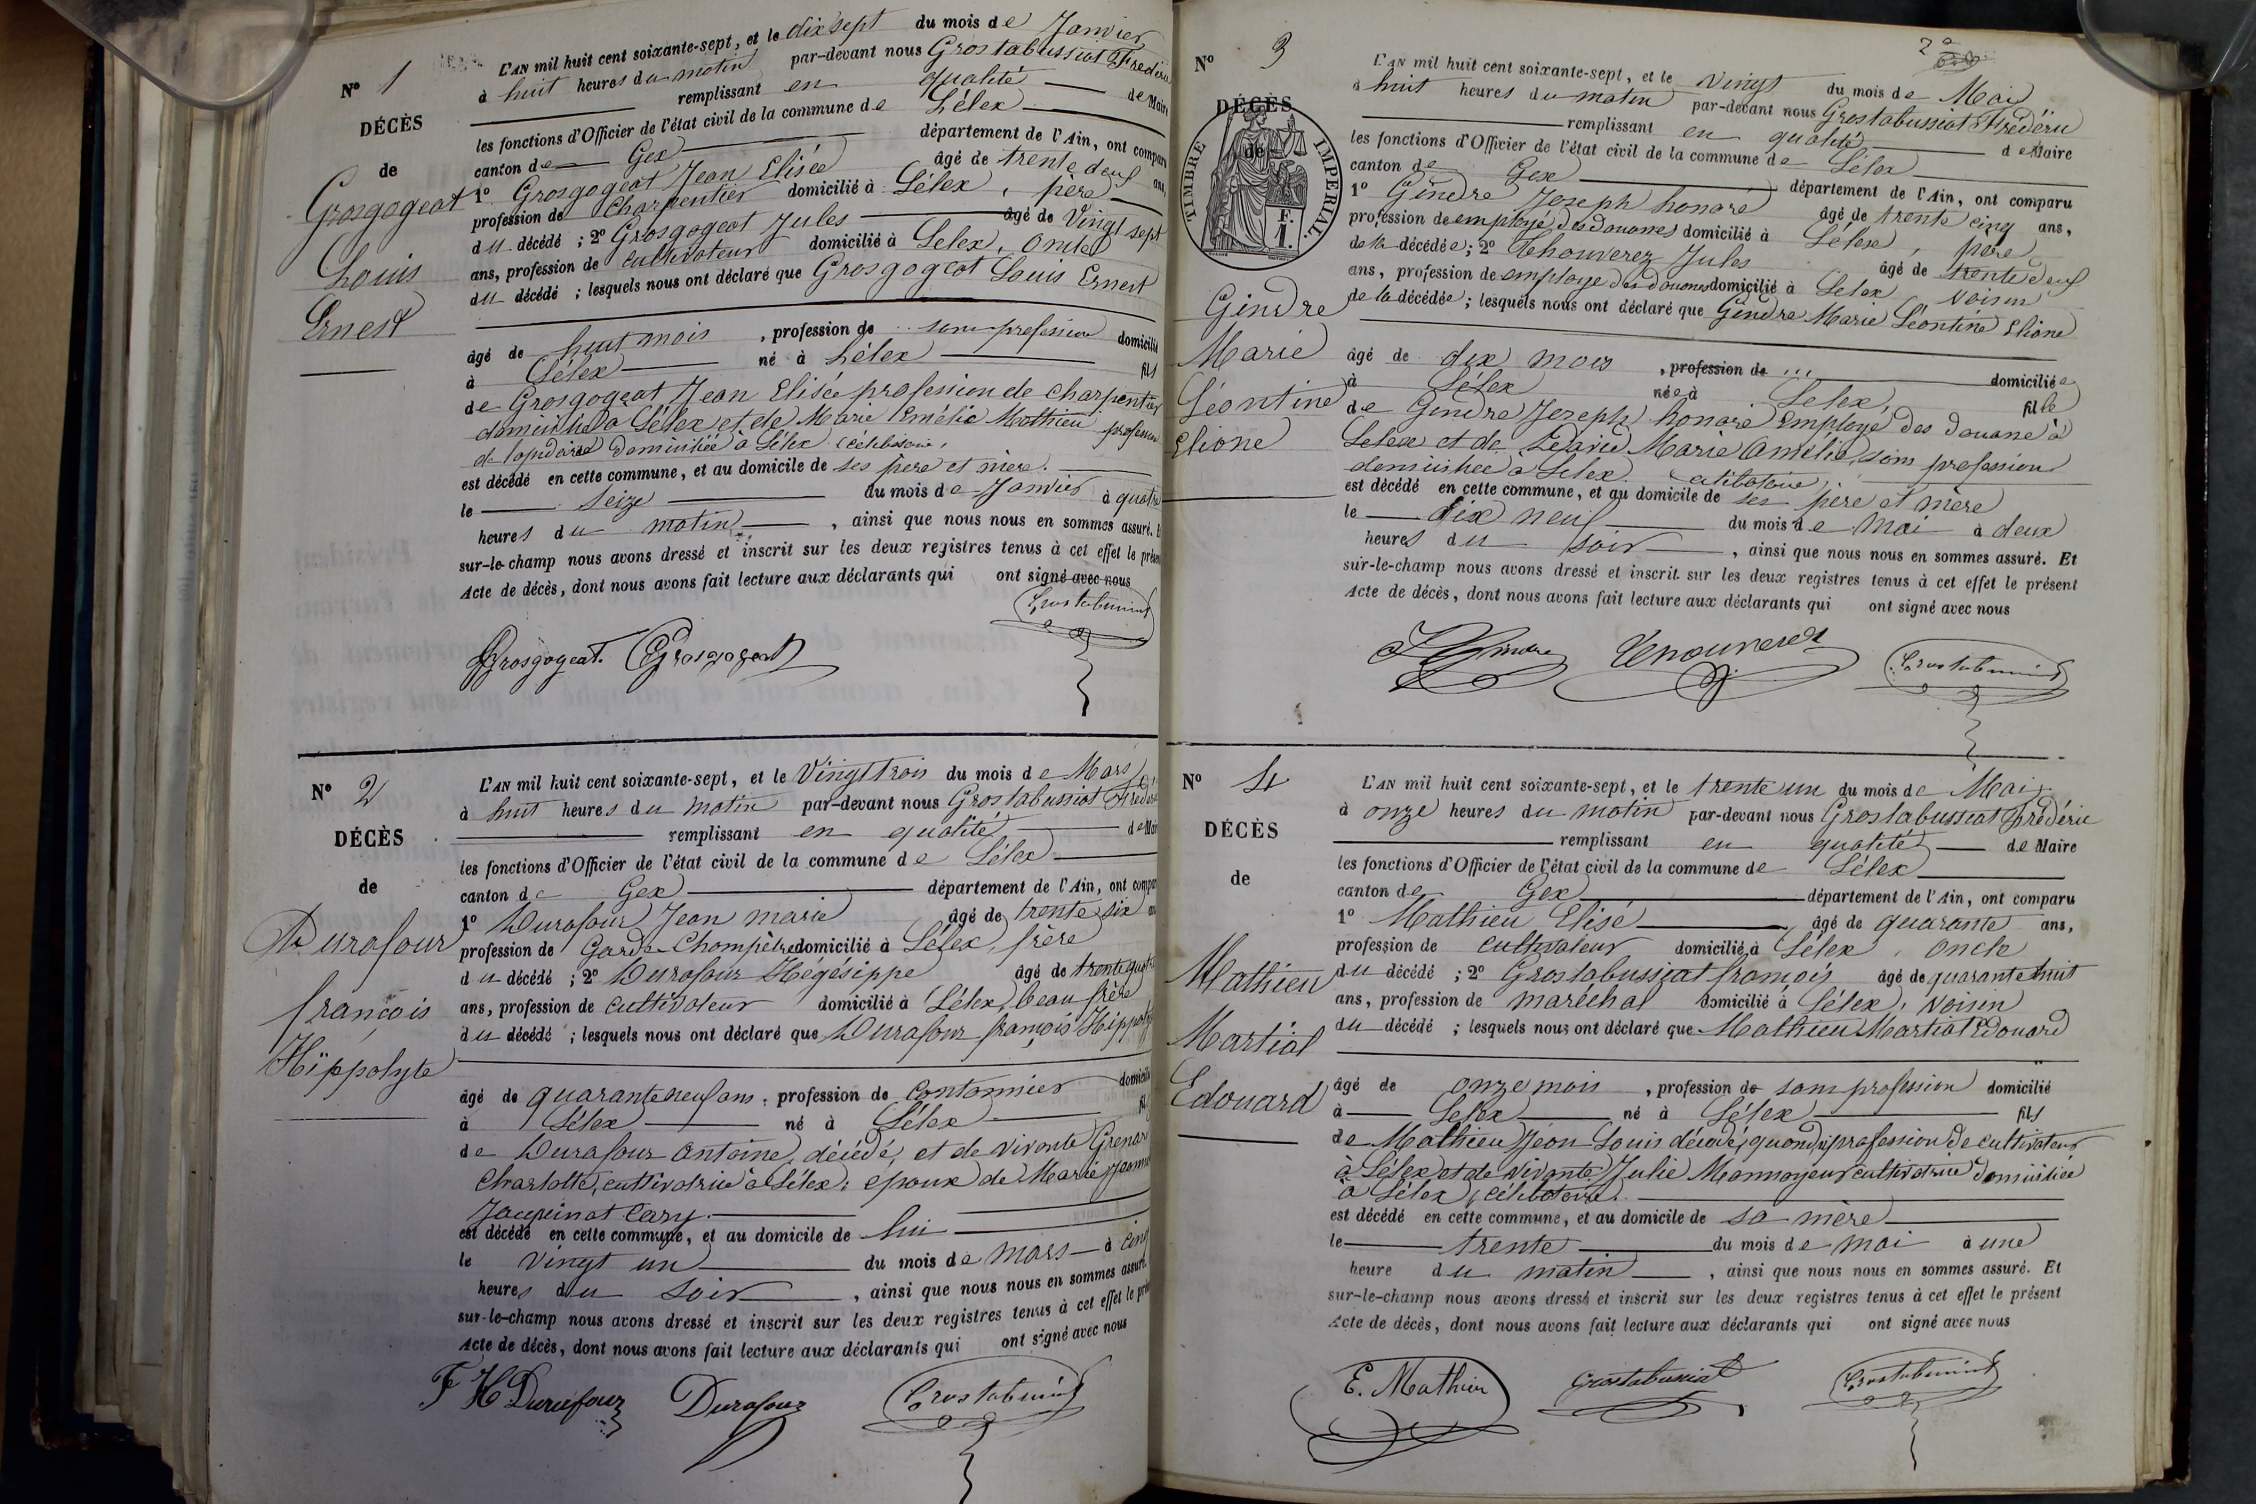 N° 1
DÉCÈS
de
Grosgogeat
Louis
Ernest
L'AN mil huit cent soixante-sept, et le dix sept du mois de Janvier
à huit heures du matin par-devant nous Grostabussiat Frédéric
remplissant en qualité de Maire
les fonctions d'Officier de l'état civil de la commune de Lélex
canton de Gex département de l'Ain, ont comparu
1° Grosgogeat Jean Elisée âgé de trente deux ans,
profession de Charpentier domicilié à Lélex, père
du décédé ; 2° Grosgogeat Jules âgé de Vingt sept
ans, profession de cultivateur domicilié à Lelex, oncle
du décédé ; lesquels nous ont déclaré que Grosgogeat Louis Ernest
âgé de huit mois, profession de sans profession domicilié
à Lélex né à Lélex fils
de Grosgogeat Jean Elisée profession de charpentier
domicilié à Lélex et de Marie Emélie Mathieu profession
de lapidaire domiciliée à Lélex célibataire,
est décédé en cette commune, et au domicile de ses père et mère.
le seize du mois de Janvier à quatre
heures du matin, ainsi que nous nous en sommes assuré. Et
sur-le-champ nous avons dressé et inscrit sur les deux registres tenus à cet effet le présent
Acte de décès, dont nous avons fait lecture aux déclarants qui ont signé avec nous
Grosgogeat. Grosgogeat Grostabussiat
N° 2
DÉCÈS
de
Durafour
françois
Hippolyte
L'AN mil huit cent soixante-sept, et le Vingt trois du mois de Mars
à huit heures du matin par-devant nous Grostabussiat Frédéric
remplissant en qualité de Maire
les fonctions d'Officier de l'état civil de la commune de Lélex
canton de Gex département de l'Ain, ont comparu
1° Durafour Jean marie âgé de trente six ans
profession de Garde-Champêtre domicilié à Lélex, frère
du décédé ; 2° Durafour Hégésippe âgé de trente quatre
ans, profession de cultivateur domicilié à Lélex, beau frère
du décédé ; lesquels nous ont déclaré que Durafour françois Hippolyte
âgé de quarante neuf ans, profession de Cantonnier domicilié
à Lélex né à Lélex fils
de Durafour Antoine, décédé, et de vivante Grenard
Charlotte, cultivatrice à Lélex, époux de Marie Jeanne
Jacquinot Cary.
est décédé en cette commune, et au domicile de lui
le vingt un du mois de mars à cinq
heures du soir, ainsi que nous nous en sommes assuré.
sur-le-champ nous avons dressé et inscrit sur les deux registres tenus à cet effet le présent
Acte de décès, dont nous avons fait lecture aux déclarants qui ont signé avec nous
F H Durafour Durafour Grostabussiat
2e
N° 3
DÉCÈS
de
TIMBRE IMPÉRIAL.
F.
1.
Gindre
Marie
Léontine
Elione
L'AN mil huit cent soixante-sept, et le vingt du mois de Mai
à huit heures du matin par-devant nous Grostabussiat Frédéric
remplissant en qualité de Maire
les fonctions d'Officier de l'état civil de la commune de Lélex
canton de Gex département de l'Ain, ont comparu
1° Gindre Joseph honoré âgé de trente cinq ans,
profession de employé des douanes domicilié à Lélex, père
de la décédée ; 2° Thouverez Jules âgé de trente deux
ans, profession de employé des douanes domicilié à Lelex Voisin
de la décédée ; lesquels nous ont déclaré que Gindre Marie Léontine Elione
âgé de dix mois, profession de ... domiciliée
à Lélex née à Lelex, fille
de Gindre Joseph honoré Employé des douane à
Lelex et de Marie Amélie, sans profession
domiciliée à Lelex. célibataire,
est décédé en cette commune, et au domicile de ses père et mère
le dix neuf du mois de mai à deux
heures du soir, ainsi que nous nous en sommes assuré. Et
sur-le-champ nous avons dressé et inscrit sur les deux registres tenus à cet effet le présent
Acte de décès, dont nous avons fait lecture aux déclarants qui ont signé avec nous
Gindre Thouverez Grostabussiat
N° 4
DÉCÈS
de
Mathieu
Martial
Edouard
L'AN mil huit cent soixante-sept, et le trente un du mois de Mai
à onze heures du matin par-devant nous Grostabussiat frédéric
remplissant en qualité de Maire
les fonctions d'Officier de l'état civil de la commune de Lélex
canton de Gex département de l'Ain, ont comparu
1° Mathieu Elisé âgé de quarante ans,
profession de cultivateur domicilié à Lélex, oncle
du décédé ; 2° Grostabussiat françois âgé de quarante huit
ans, profession de maréchal domicilié à Lélex, voisin
du décédé ; lesquels nous ont déclaré que Mathieu Martial Edouard
âgé de onze mois, profession de sans profession domicilié
à Lelex né à Lélex fils
de Mathieu Jean Louis décédé, quand vi profession de cultivateur
à Lélex, et de vivante Julie Monnoyeur cultivatrice domiciliée
à Lélex, célibataire.
est décédé en cette commune, et au domicile de sa mère
le trente du mois de mai à une
heure du matin, ainsi que nous nous en sommes assuré. Et
sur-le-champ nous avons dressé et inscrit sur les deux registres tenus à cet effet le présent
Acte de décès, dont nous avons fait lecture aux déclarants qui ont signé avec nous
E. Mathieu Grostabussiat Grostabussiat